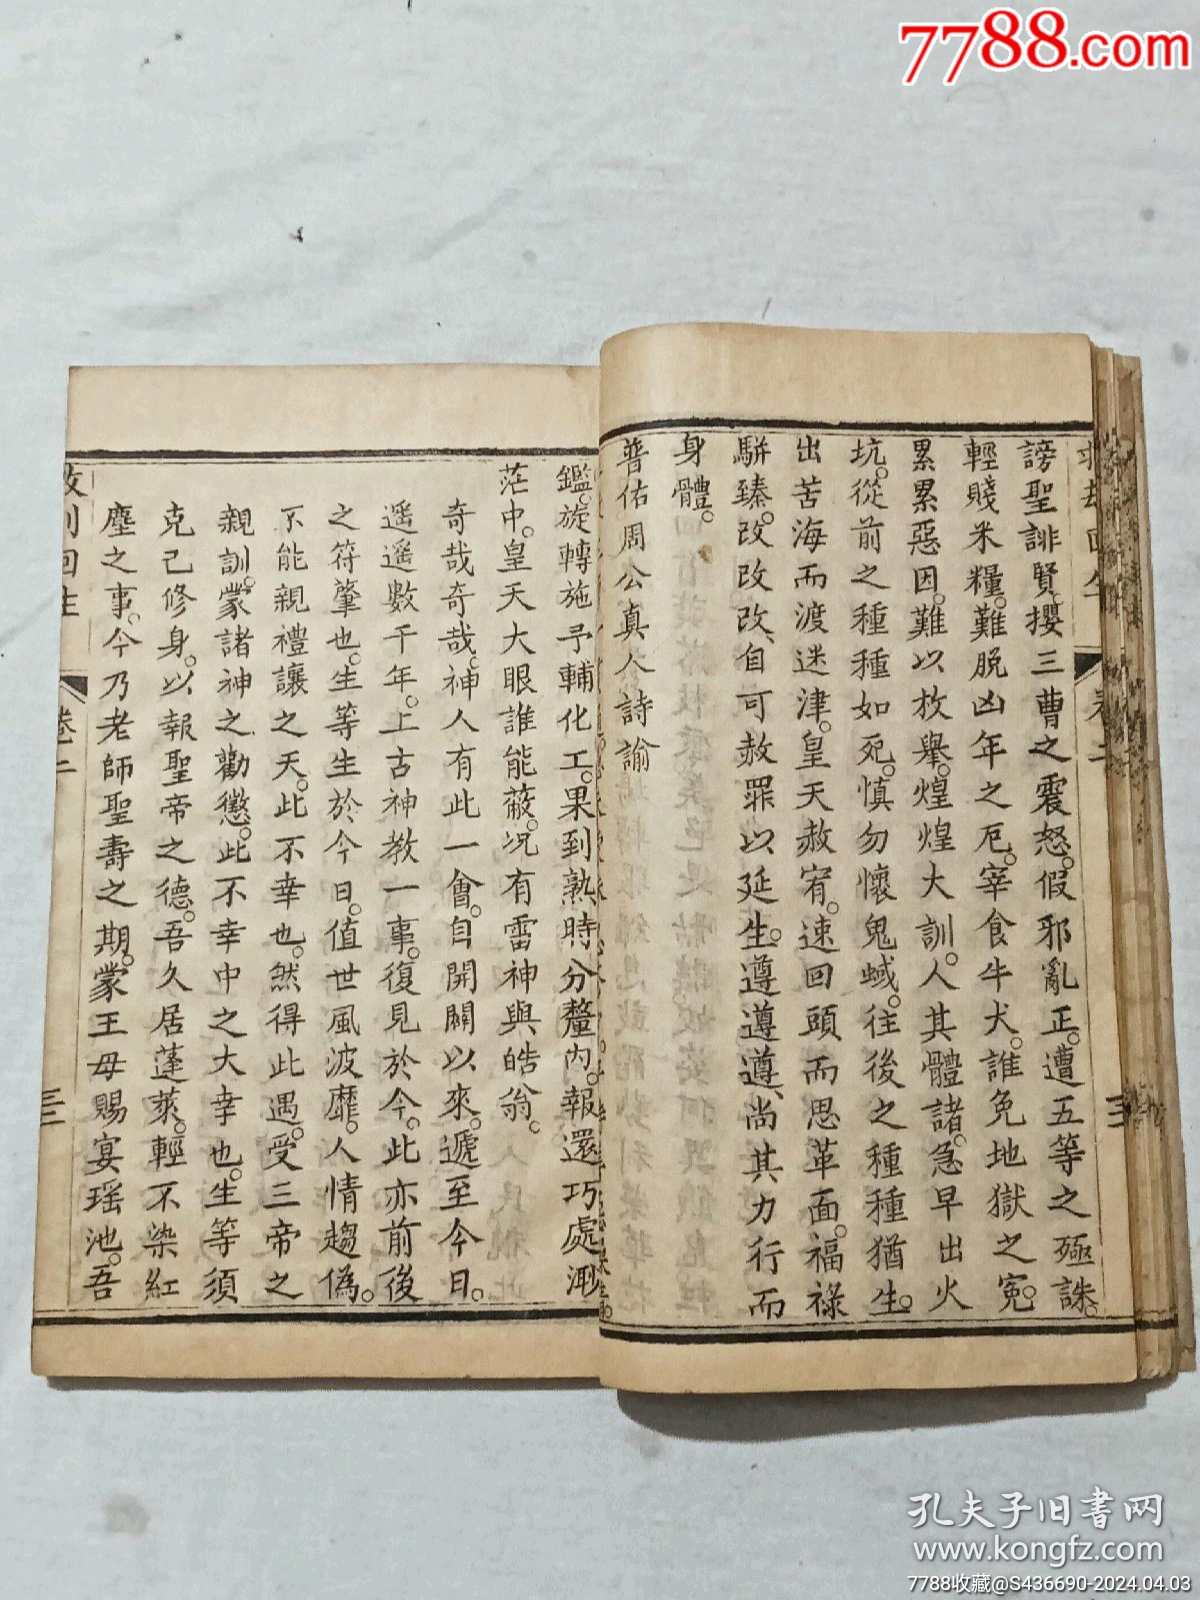 7788.com
謗聖誹賢。攖三曹之震怒。假邪亂正。遭五等之殛誅。
輕賤米糧。難脱凶年之厄。宰食牛犬。誰免地獄之冤。
累累惡因。難以枚舉。煌煌大訓。人其體諸。急早出火
坑。從前之種種如死。慎勿懷鬼蜮。往後之種種猶生。
出苦海而渡迷津。皇天赦宥。速回頭而思革面。福祿
駢臻。改改改、自可赦罪以延生。遵遵遵、尚其力行而
身體。
普佑周公真人詩諭
鑑。旋轉施予輔化工。果到熟時分釐內。報還巧處渺
茫中。皇天大眼誰能蔽。况有雷神與皓翁。
奇哉奇哉。神人有此一會。自開闢以來。遞至今日。
遥遥數千年。上古神教一事。復見於今。此亦前後
之符肇也。生等生於今日。值世風波靡。人情趨偽。
不能親禮讓之天。此不幸也。然得此遇。受三帝之
親訓。蒙諸神之勸懲。此不幸中之大幸也。生等須
克己修身。以報聖帝之德。吾久居蓬萊。輕不染紅
塵之事。今乃老師聖壽之期。蒙王母賜宴瑶池。吾
卷二
三
孔夫子旧书网
www.kongfz.com
7788收藏@S436690-2024.04.03